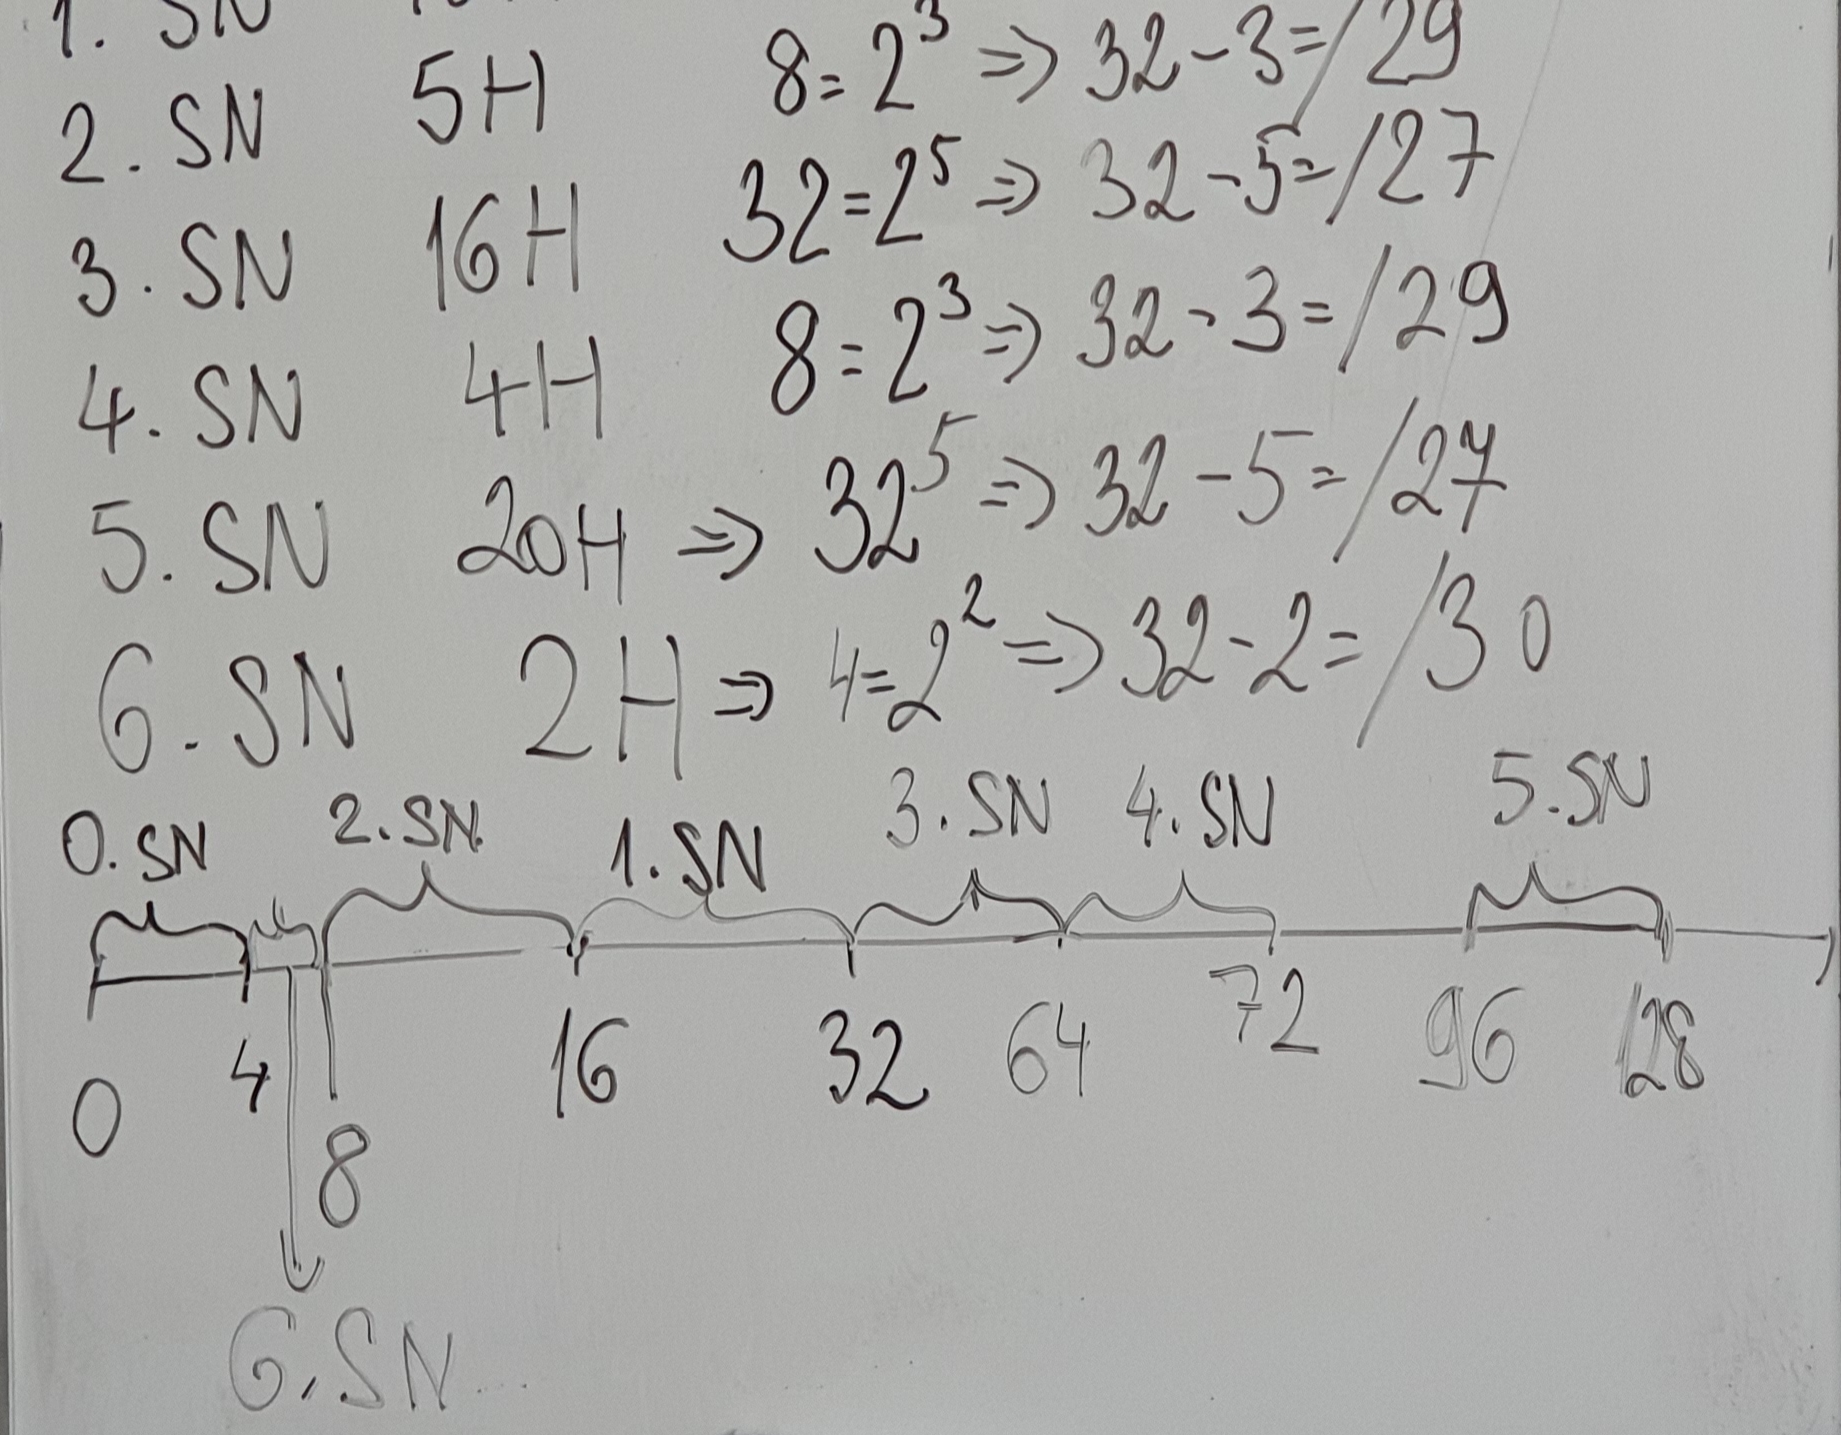 1. SN
2. SN 5H 8=2³ => 32-3=/29
3. SN 16H 32=2⁵ => 32-5=/27
4. SN 4H 8=2³ => 32-3=/29
5. SN 20H => 32⁵ => 32-5=/27
6. SN 2H => 4=2² => 32-2=/30
0. SN 2. SN 1. SN 3. SN 4. SN 5. SN
0 4 8 16 32 64 72 96 128
6. SN